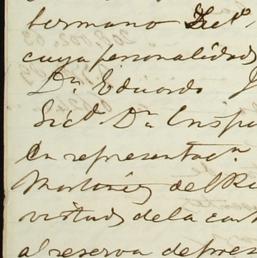 hermano
cuya personalidad
Dn. Eduardo
Licdo. Dn. Crispi
En representacn.
Martinez del Ri
virtud de la cart
al reserva de pres